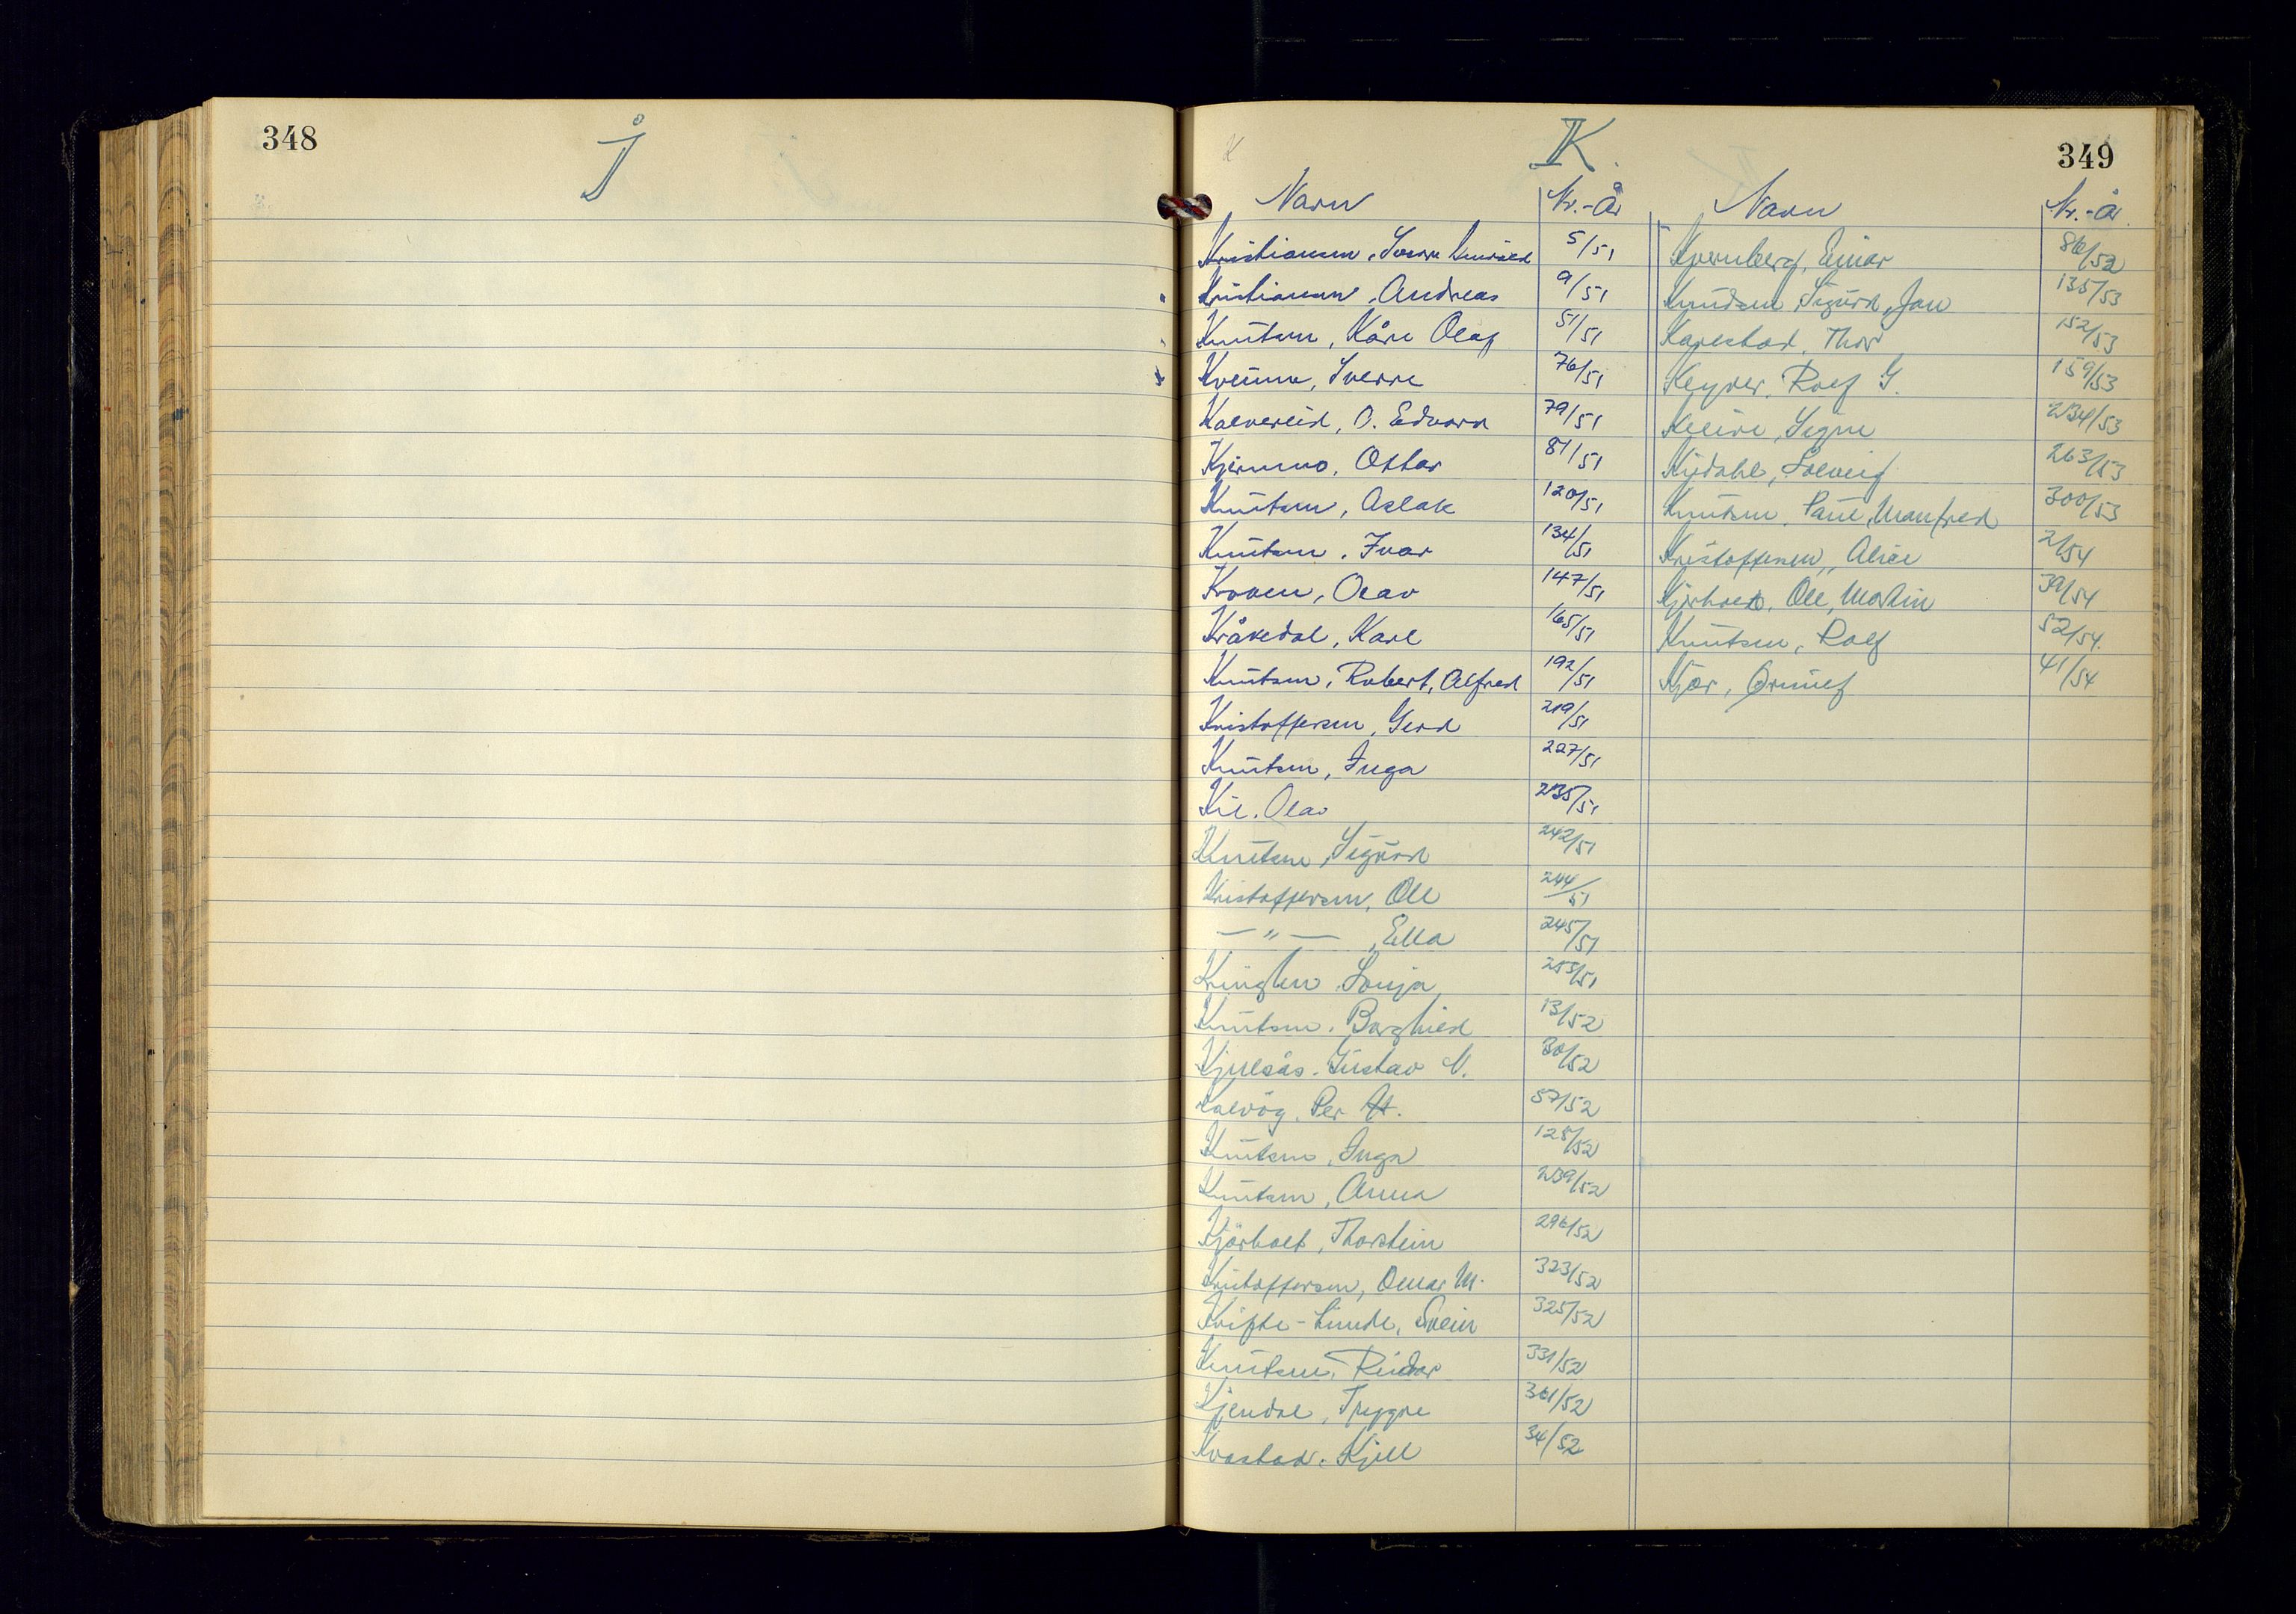 348
J
K
K.
349
Navn Nr.-År
Kristiansen, Sverre
5/51
Kristiansen, Andreas 9/51
Knutsen, Kåre Olaf 51/51
Kveinne, Sverre 76/51
Kalvereid, O. Edvard 79/51
Kjermmo, Ottar 81/51
Knutsen, Aslak 120/51
Knutsen, Ivar 134/51
Kroken, Olav 147/51
Kråkedal, Karl 165/51
Knutsen, Robert, Alfred 192/51
Kristoffersen, Gerd 219/51
Knutsen, Inga 227/51
Kil, Olav 235/51
Knutsen, Sigurd 242/51
Kristoffersen, Ole 244/51
— " — , Ella 245/51
Sonja 253/51
Knutsen, Borghild 13/52
Kjelsås, Gustav N. 30/52
Kalvåg, Per H. 57/52
Knutsen, Inga 128/52
Knutsen, Anna 239/52
Kjørholt, Thorstein 296/52
Kristoffersen, Omar M. 323/52
Kvifte-Linde, Svein 325/52
Knutsen, Reidar 331/52
Kjendal, Trygve 361/52
Kvastad, Kjell 34/52
Navn Nr.-År.
Kvernberg, Einar 86/52
Knudsen, Sigurd, Jan 135/53
Kapelstad, Thor 152/53
Keyser, Rolf G. 159/53
Kleive, Signe 234/53
Kjedahl, Solveig 263/53
Knutsen, Paul, Manfred 300/53
Kristoffersen, Alice 2/54
Kjørholt, Ole, Martin 39/54
Knutsen, Rolf 52/54.
Kjær, Ørnulf 41/54